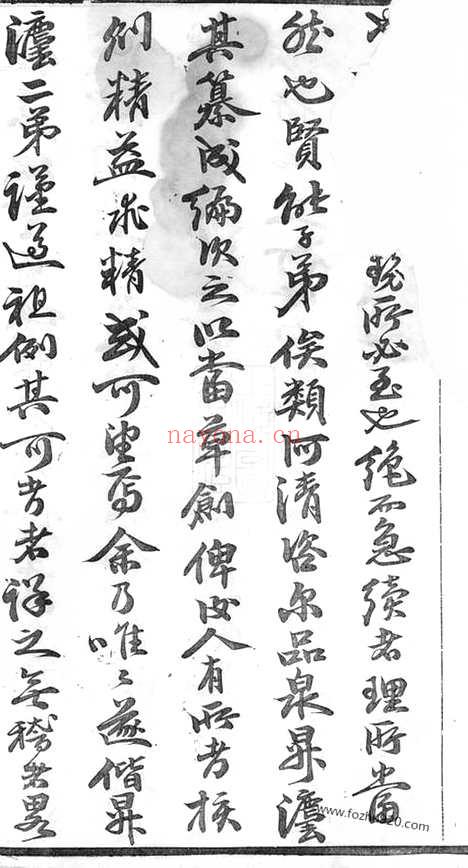 勢所必至也絕而急續者理所當
然也賢能子弟俟類河清咨尔品泉昇瀛
其纂成編次之以當草創俾後人有所考核
則精益求精或可望焉余乃唯々遂偕昇
瀛二弟謹遵祖例其可考者詳之無稽者畧
nayona.cn
www.fozhu920.com